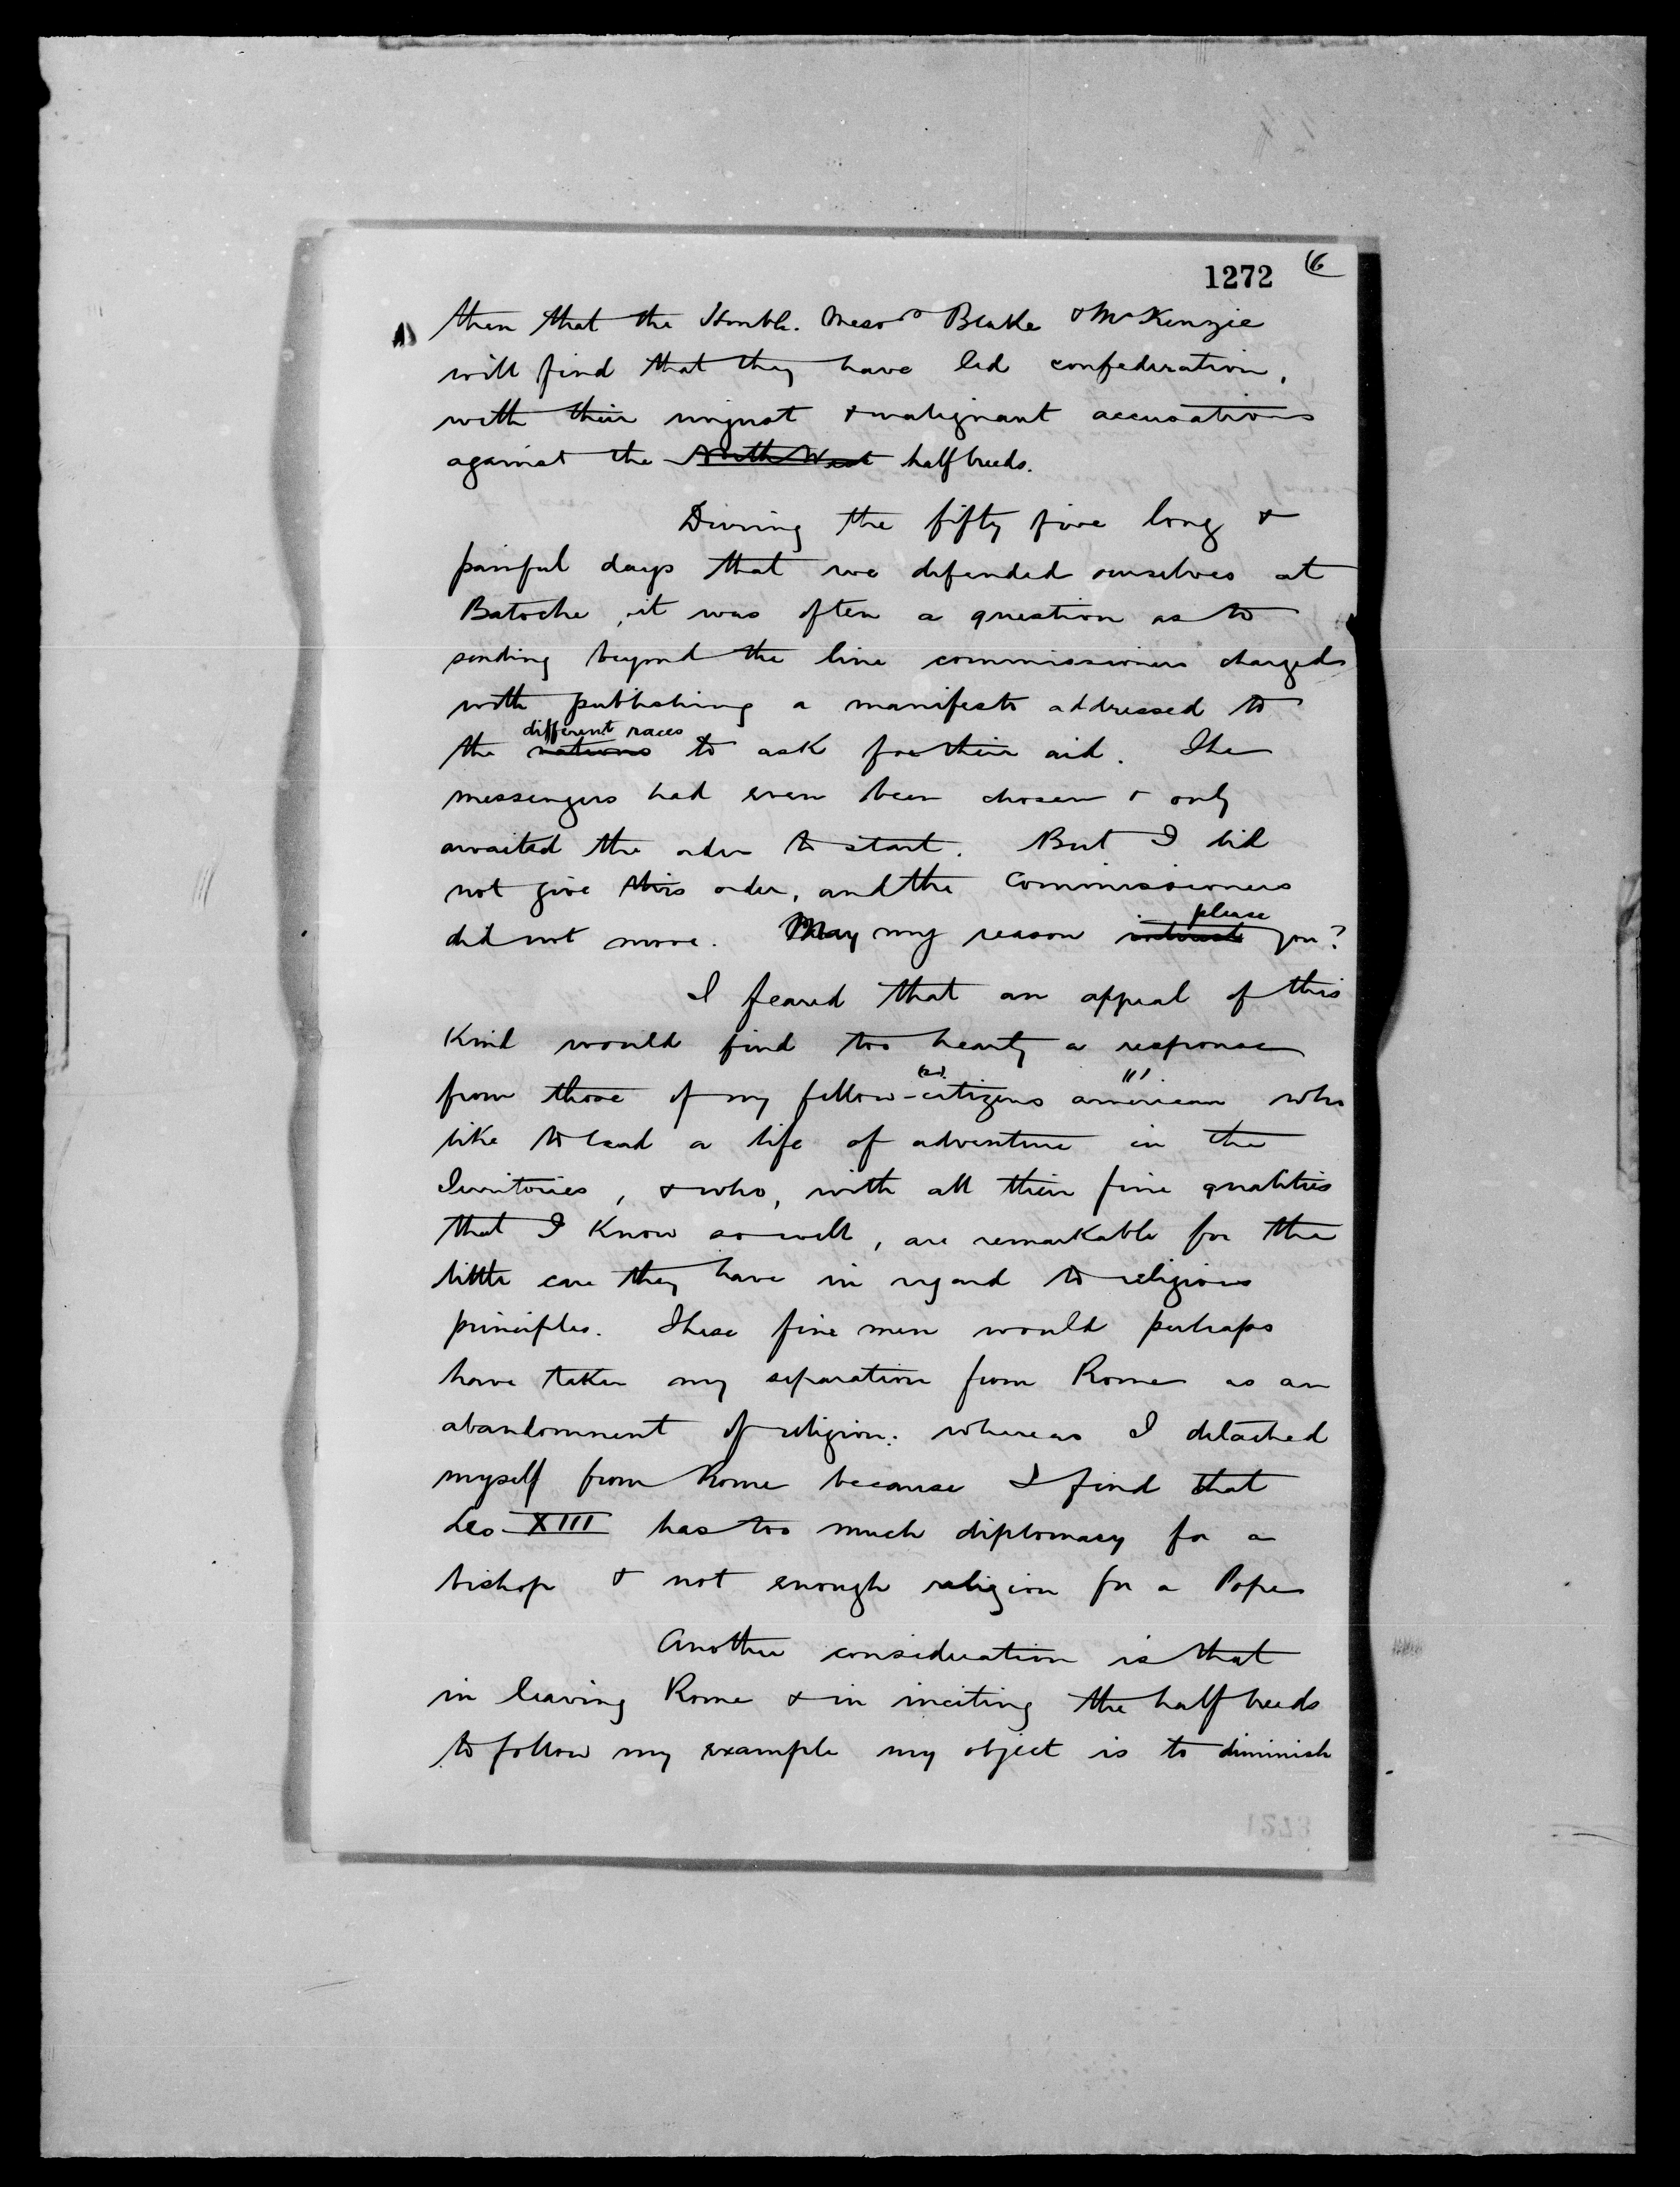 1272 6
then that the Honble. Messrs Blake & McKenzie
will find that they have led confederation,
with their unjust & malignant accusations
against the North West half breeds.
During the fifty five long &
painful days that we defended ourselves at
Batoche, it was often a question as to
sending beyond the line commissioners charged
with publishing a manifesto addressed to
different races
the nations to ask for their aid. The
messengers had even been chosen & only
awaited the order to start. But I did
not give this order, and the Commissioners
please
did not move. May my reason interest you?
I feared that an appeal of this
Kind would find too hearty a response
(2) (1)
from those of my fellow-citizens american who
like to lead a life of adventure in the
Territories, & who, with all their fine qualities
that I Know so well, are remarkable for the
little care they have in regard to religious
principles. These fine men would perhaps
have taken my separation from Rome as an
abandonment of religion: whereas I detached
myself from Rome because I find that
Leo XIII has too much diplomacy for a
bishop & not enough religion for a Pope
Another consideration is that
in leaving Rome & in inciting the half breeds
to follow my example my object is to diminish